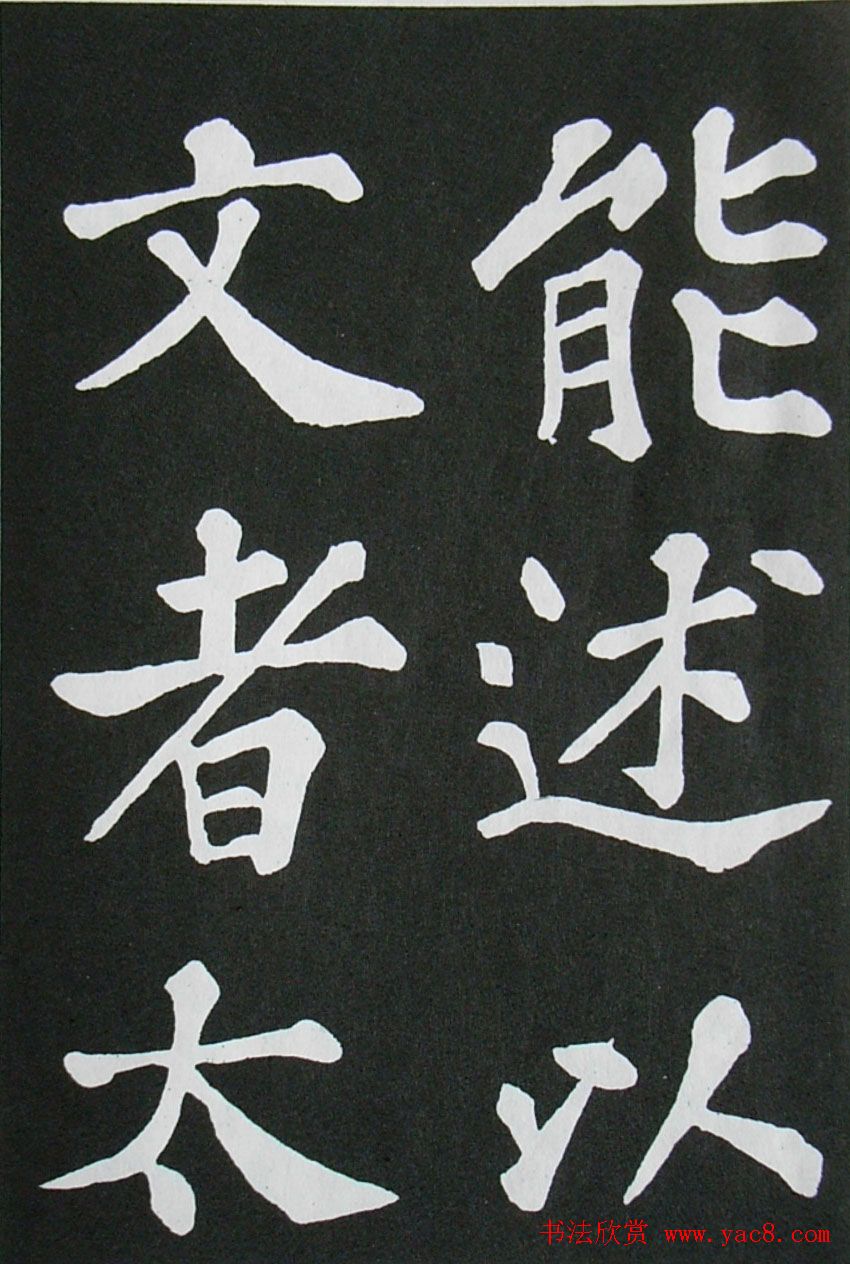 能述以
文者太
书法欣赏 www.yac8.com